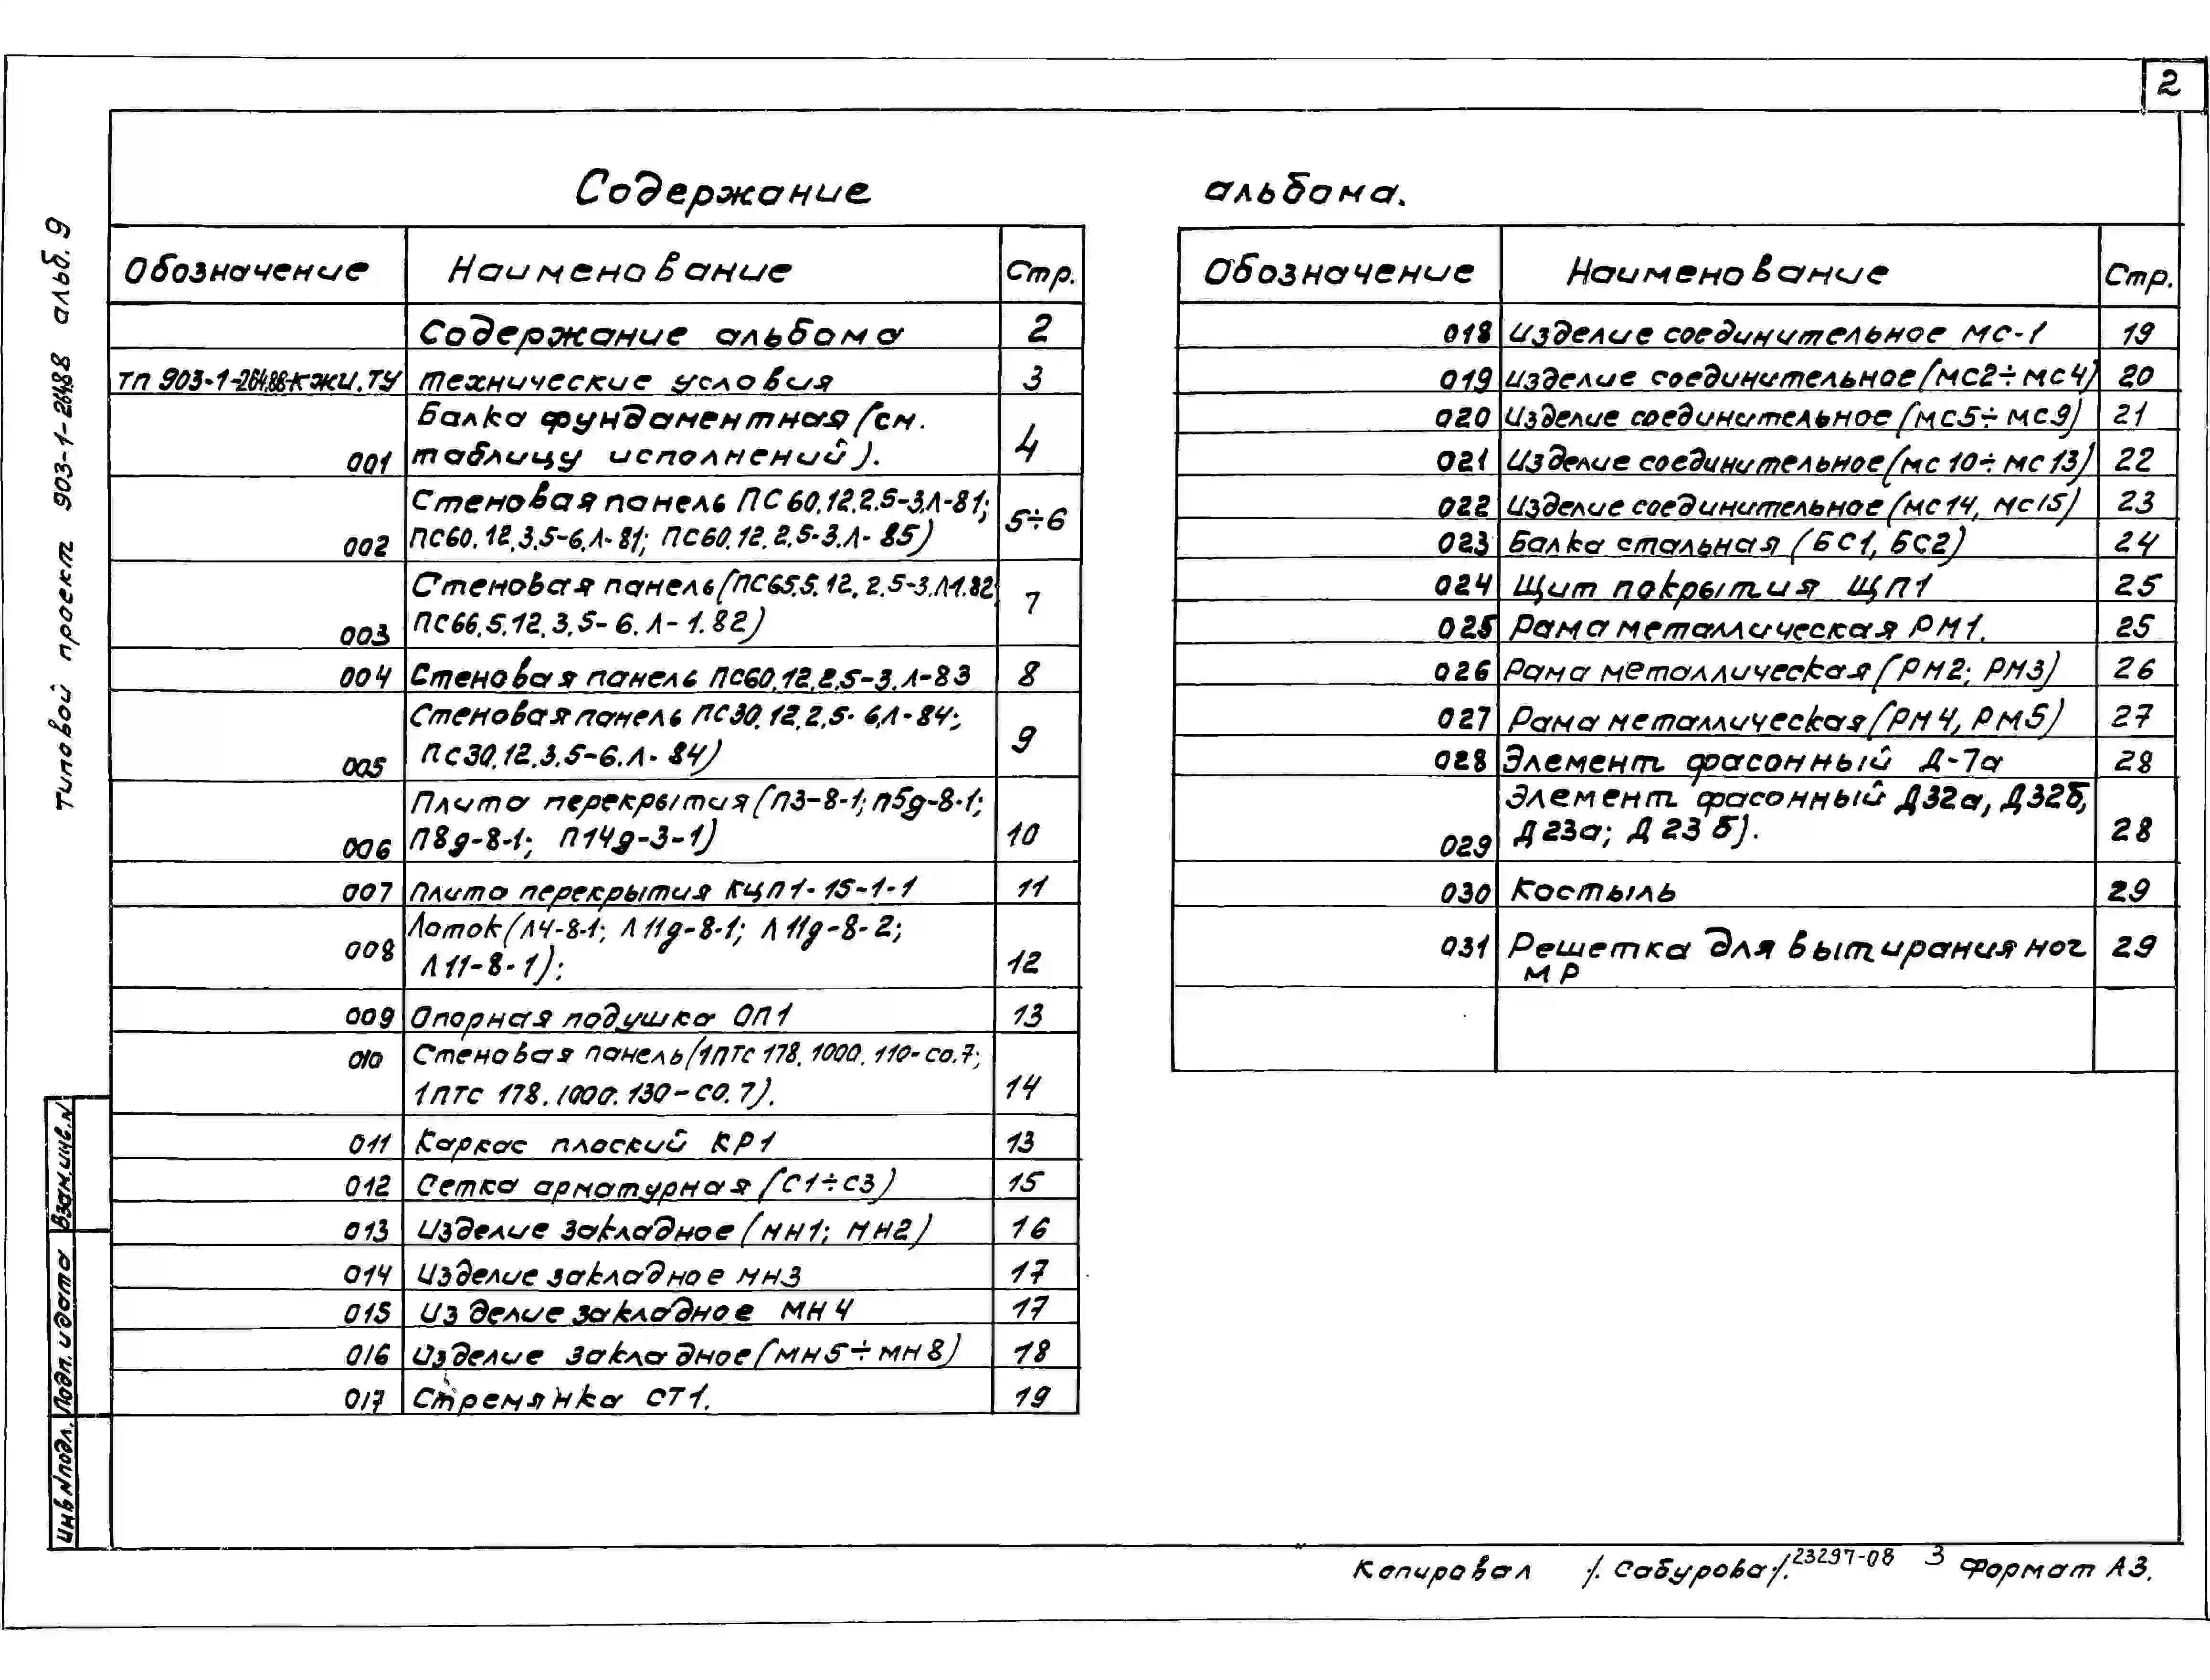 2
Типовой проект 903-1-264.88 альб. 9
Содержание альбома.
Обозначение Наименование Стр.
Содержание альбома 2
ТП 903-1-264.88-КЖИ.ТУ технические условия 3
Балка фундаментная (см.
001 таблицу исполнений). 4
Стеновая панель ПС 60.12.2.5-3.Л-81;
002 ПС60.12.3.5-6.Л-81; ПС60.12.2.5-3.Л-85) 5÷6
Стеновая панель (ПС65.5.12.2.5-3.Л-1.82
003 ПС66.5.12.3.5-6.Л-1.82) 7
004 Стеновая панель ПС60.12.2.5-3.Л-83 8
Стеновая панель ПС30.12.2.5-6.Л-84;
005 ПС30.12.3.5-6.Л-84) 9
Плита перекрытия (П3-8-1; П5д-8-1;
006 П8д-8-1; П14д-3-1) 10
007 Плита перекрытия КЦП1-15-1-1 11
Лоток (Л4-8-1; Л11д-8-1; Л11д-8-2;
008 Л11-8-1); 12
009 Опорная подушка ОП1 13
010 Стеновая панель (1ПТС 178.1000.110-со.7;
1ПТС 178.1000.130-СО.7). 14
011 Каркас плоский КР1 13
012 Сетка арматурная (С1÷С3) 15
013 Изделие закладное (МН1; МН2) 16
014 Изделие закладное МН3 17
015 Изделие закладное МН4 17
016 Изделие закладное (МН5÷МН8) 18
017 Стремянка СТ1. 19
Обозначение Наименование Стр.
018 Изделие соединительное МС-1 19
019 Изделие соединительное (МС2÷МС4) 20
020 Изделие соединительное (МС5÷МС9) 21
021 Изделие соединительное (МС10÷МС13) 22
022 Изделие соединительное (МС14, МС15) 23
023 Балка стальная (БС1, БС2) 24
024 Щит покрытия ЩП1 25
025 Рама металлическая РМ1. 25
026 Рама металлическая (РМ2; РМ3) 26
027 Рама металлическая (РМ4, РМ5) 27
028 Элемент фасонный Д-7а 28
Элемент фасонный Д32а, Д32б,
029 Д23а; Д23б). 28
030 Костыль 29
031 Решетка для вытирания ног 29
МР
Взам.инв.N
Подп. и дата
Инв N подл.
Копировал /. Сабурова /. 23297-08 3 Формат А3.